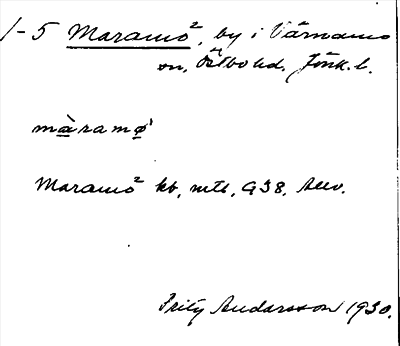 1-5 Maramö², by i Värnamo
sn, Östbo hd. Jönk. l.
màramø'
Maramö² kb, mtl, G38, Allv.
Fritz Andersson 1930.